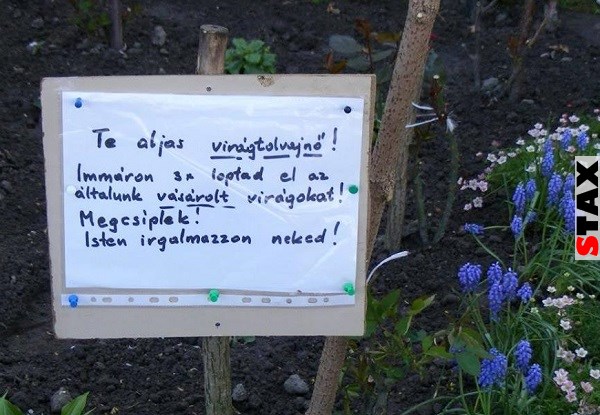 Te aljas virágtolvajnő!
Immáron 3x loptad el az
általunk vásárolt virágokat!
Megcsíplek!
Isten irgalmazzon neked!
STAX